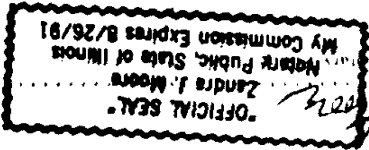 "OFFICIAL SEAL"
Zandra J. Moore
Notary Public, State of Illinois
My Commission Expires 8/26/91